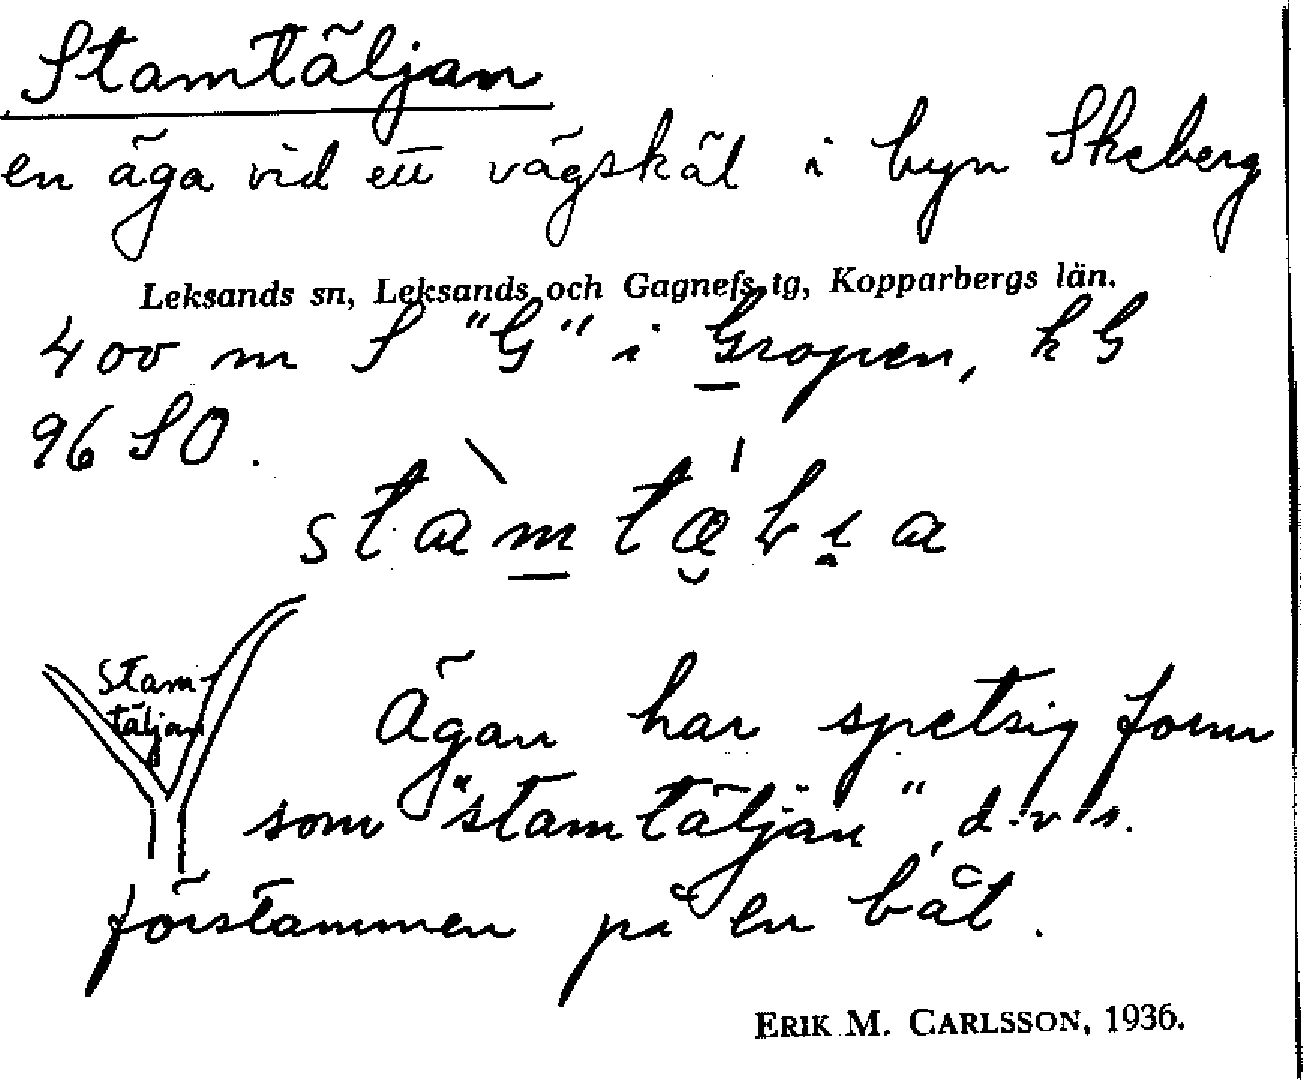 Stamtäljan
en äga vid ett vägskäl i byn Skeberg
Leksands sn, Leksands och Gagnefs tg, Kopparbergs län.
400 m S "G" i Gropen, k G
96 SO.
Stam-
täljan
Ägan har spetsig form
som "stamtäljan", d.v.s.
förstammen på en båt.
ERIK M. CARLSSON, 1936.